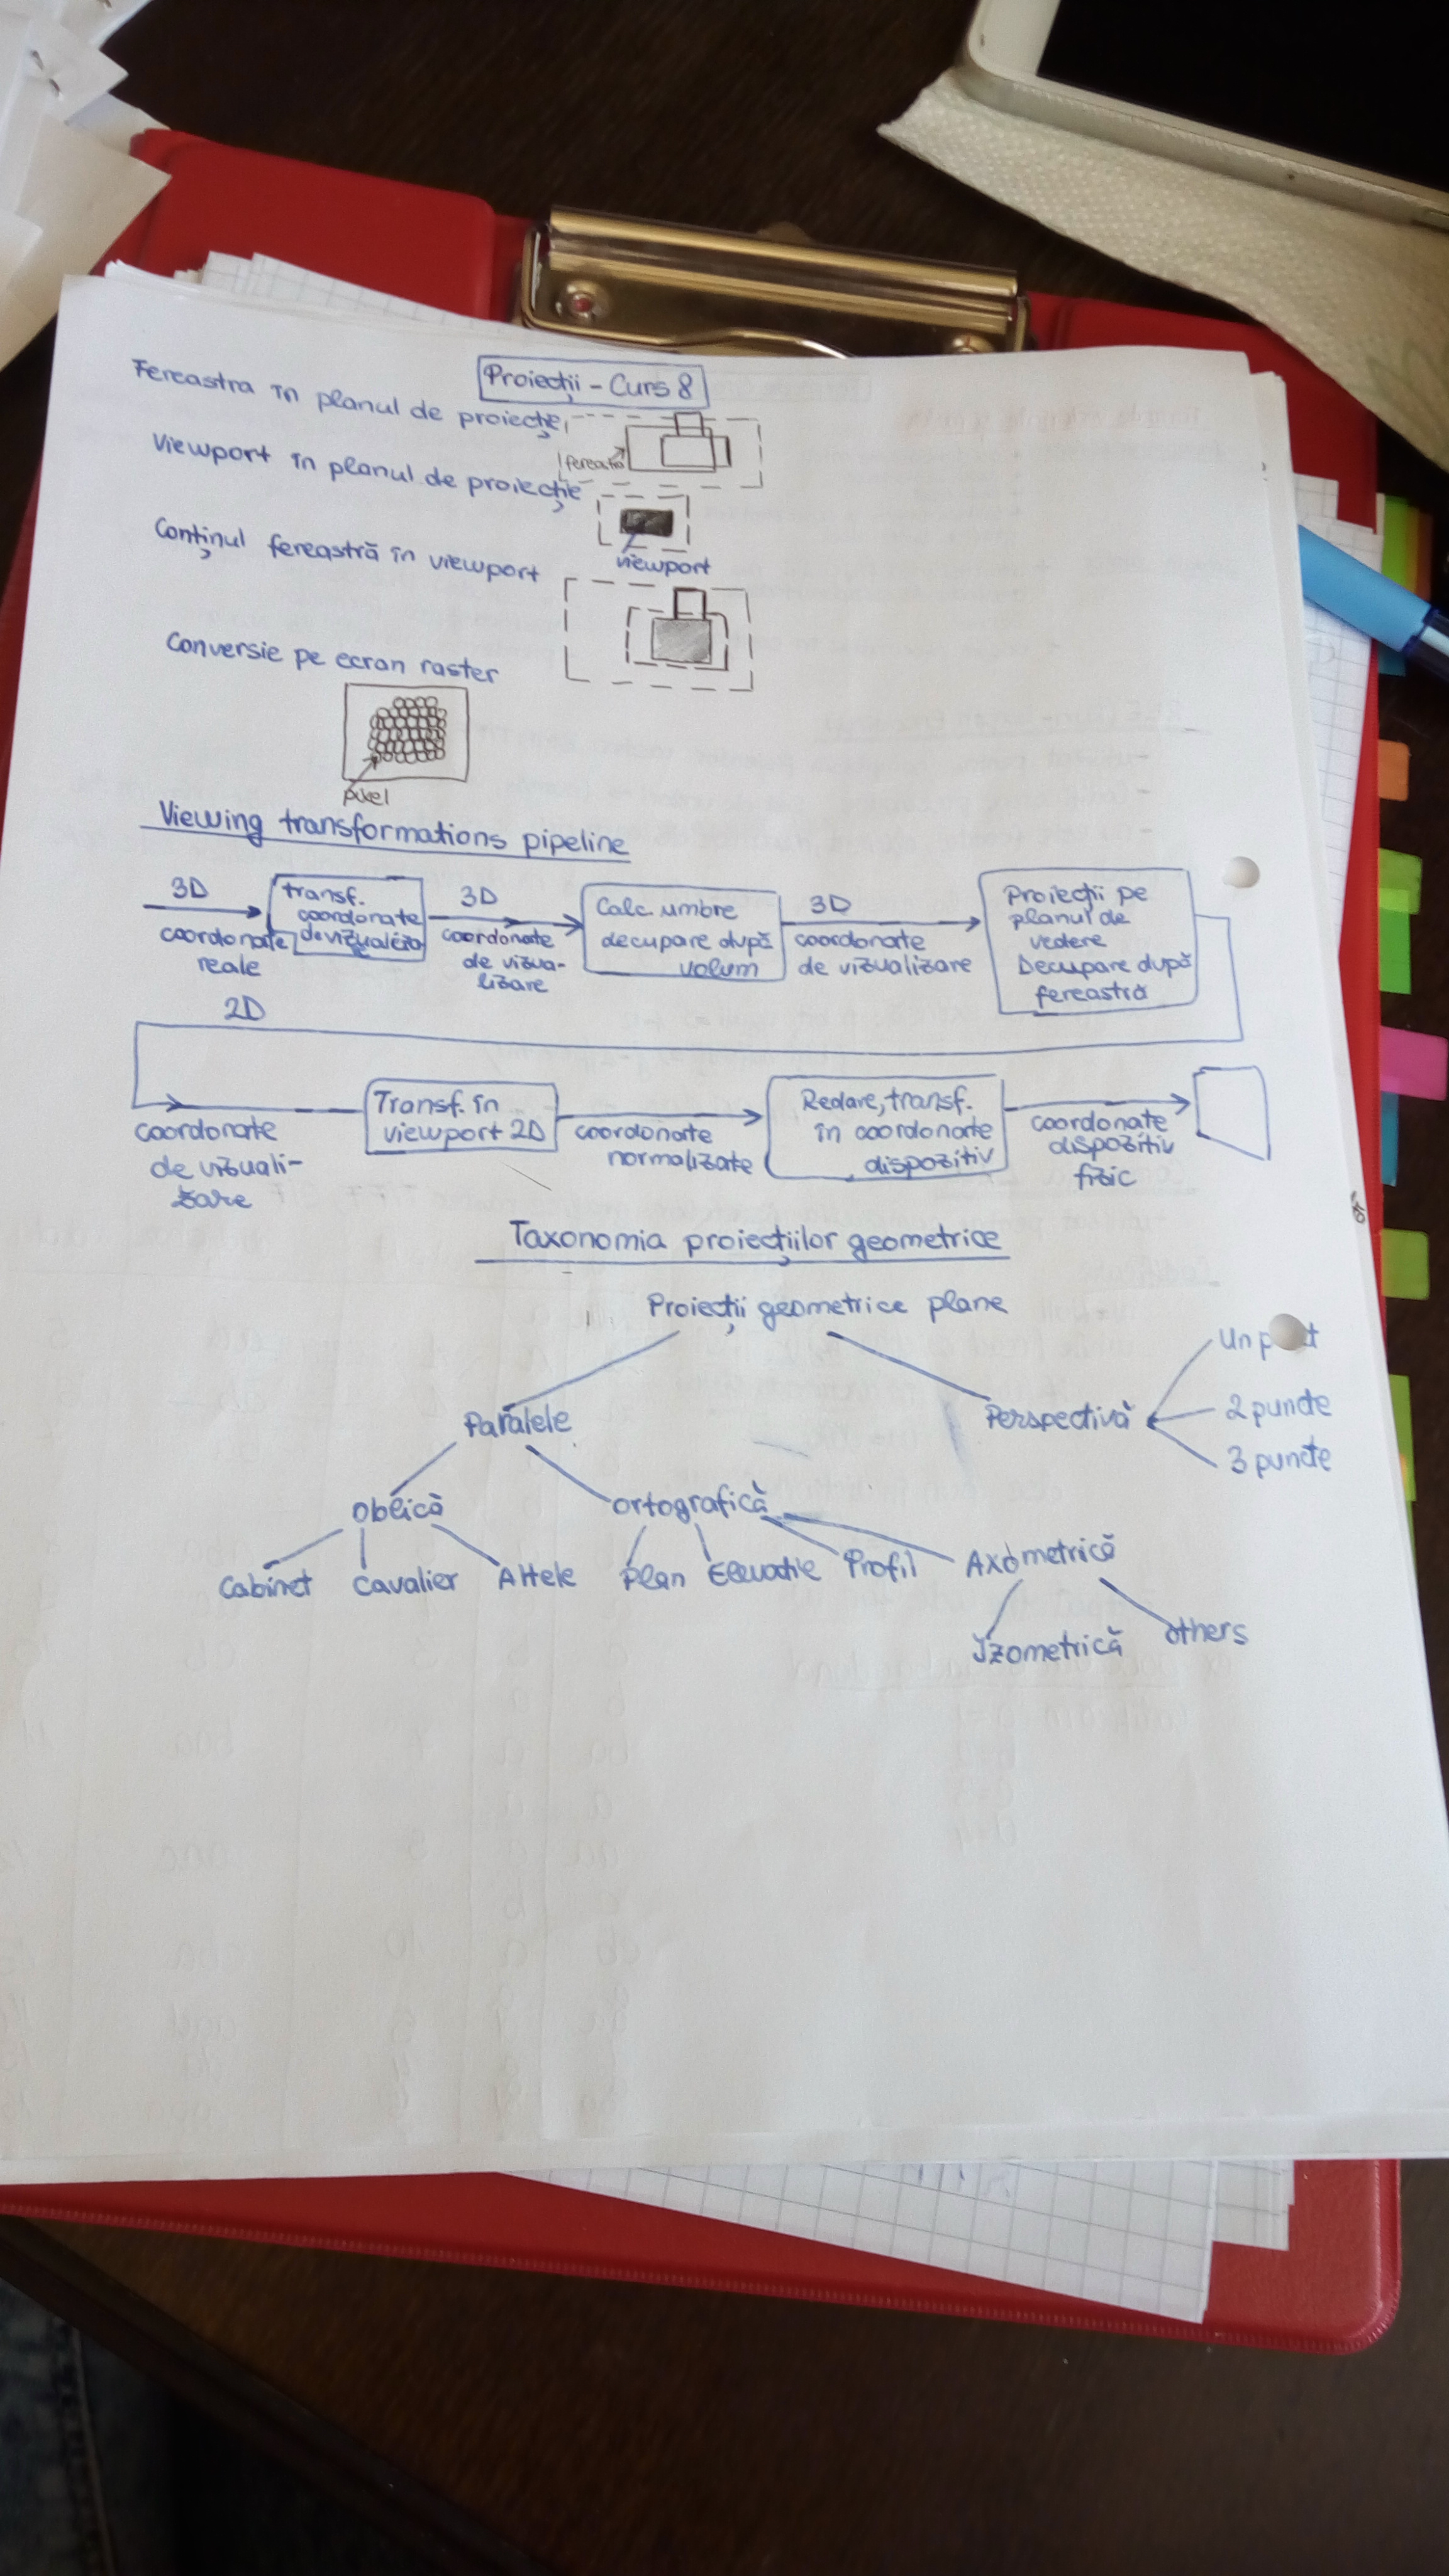 Proiecții - Curs 8
Fereastra în planul de proiecție
fereastra
Viewport în planul de proiecție
viewport
Conținul fereastră în viewport
Conversie pe ecran raster
pixel
Viewing transformations pipeline
3D
coordonate
reale
transf.
coordonate
de vizualiza
re
3D
coordonate
de vizua-
lizare
Calc. umbre
decupare după
volum
3D
coordonate
de vizualizare
Proiecții pe
planul de
vedere
Decupare după
fereastră
2D
coordonate
de vizuali-
zare
Transf. în
viewport 2D
coordonate
normalizate
Redare, transf.
în coordonate
dispozitiv
coordonate
dispozitiv
fizic
Taxonomia proiecțiilor geometrice
Proiecții geometrice plane
Paralele
Perspectivă
Un
2 puncte
3 puncte
Oblică
ortografică
Cabinet Cavalier Altele Plan Elevație Profil Axometrică
Izometrică others